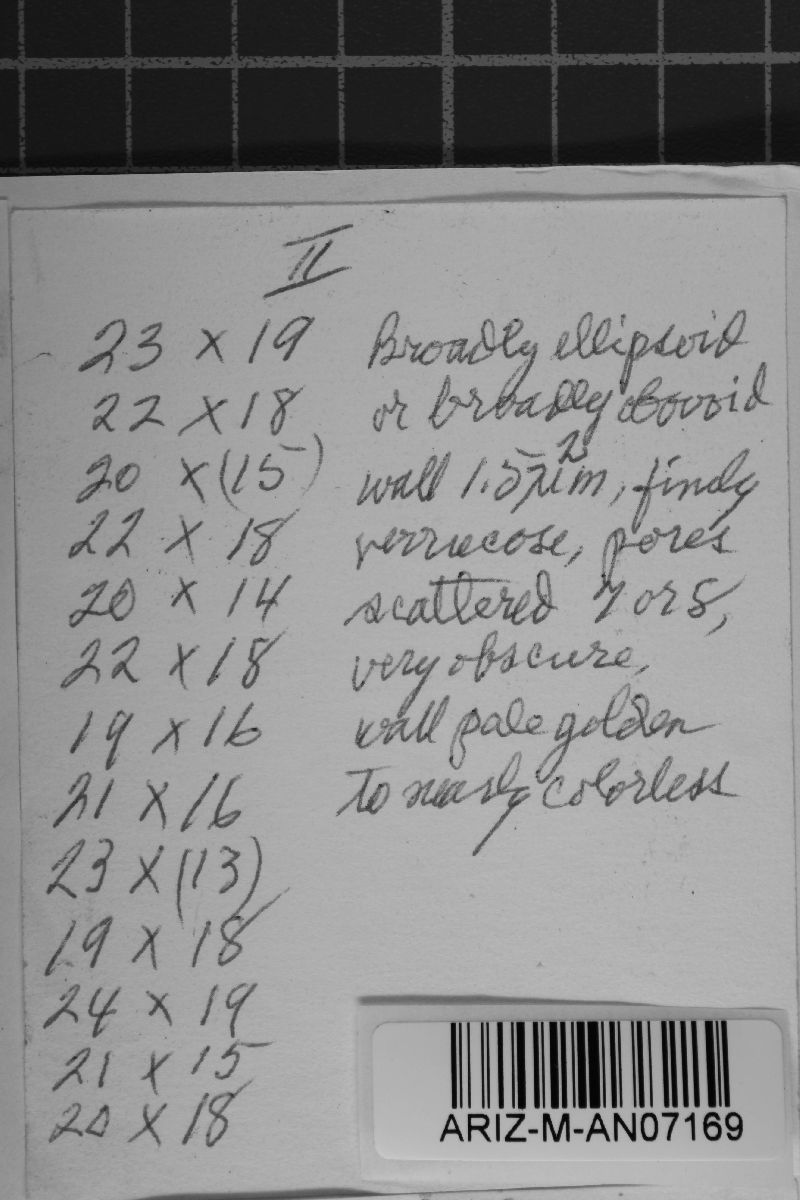 II
23 x 19 Broadly ellipsoid
22 x 18 or broadly obovoid
20 x (15) wall 1.5-2 µm, finely
22 x 18 verrucose, pores
20 x 14 scattered 7 or 8,
22 x 18 very obscure,
19 x 16 wall pale golden
21 x 16 to nearly colorless
23 x (13)
19 x 18
24 x 19
21 x 15
20 x 18
ARIZ-M-AN07169